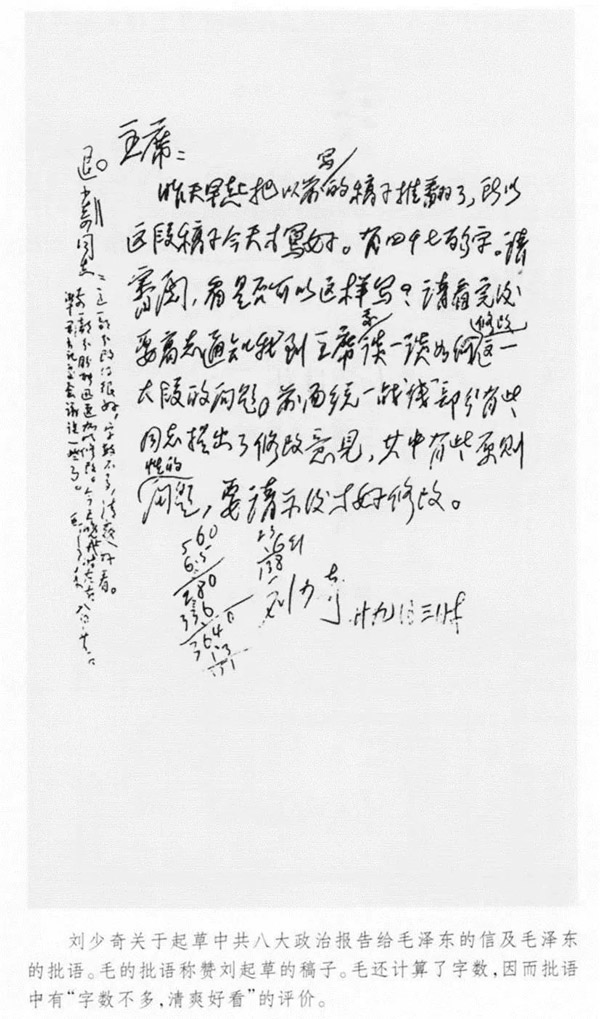 主席：
昨天早起把以前写的稿子推翻了，所以
这段稿子今天才写好。有四千七百多字。请
审阅，看是否可以这样写？请看完后
要高志通知我到主席处谈一谈如何修改这一
大段的问题。前面统一战线部分有些
同志提出了修改意见，其中有些原则
性的问题，要请示后才好修改。
刘少奇 廿九日三时
560
6.5
280
336
3640
13
退少奇同志：这一部分改得很好，字数不多，清爽好看。
刘少奇关于起草中共八大政治报告给毛泽东的信及毛泽东
的批语。毛的批语称赞刘起草的稿子。毛还计算了字数，因而批语
中有“字数不多，清爽好看”的评价。